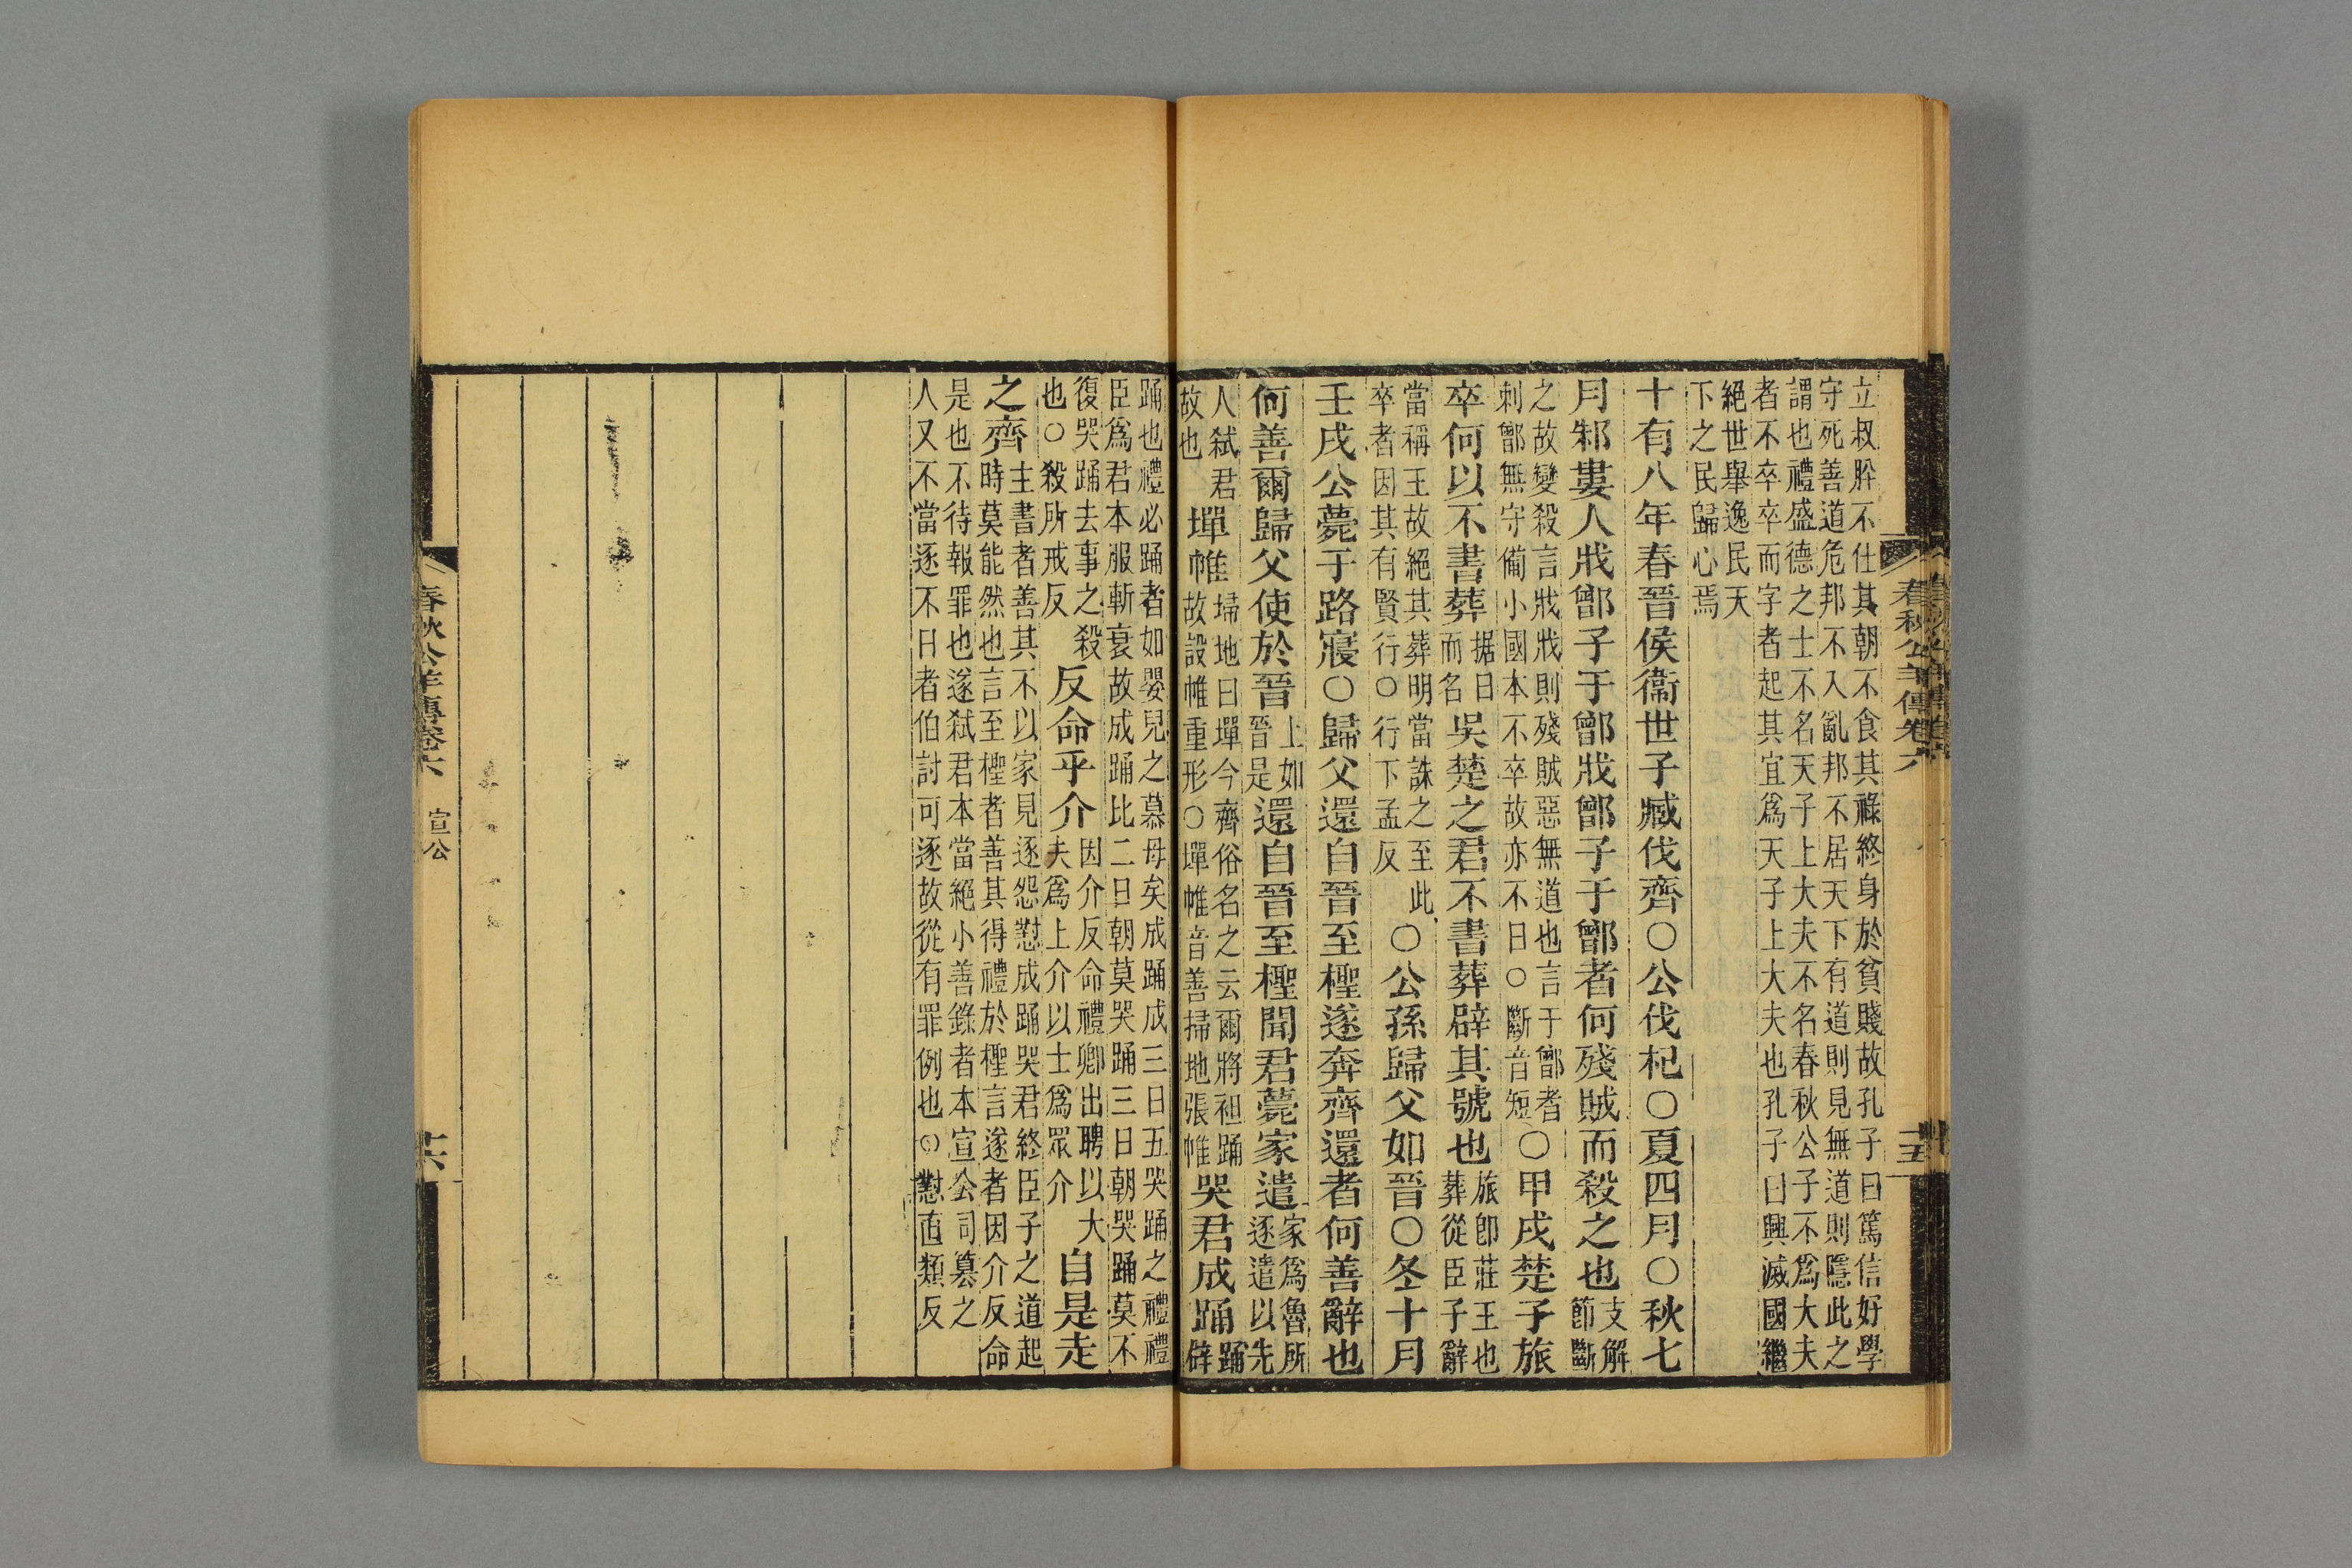 春秋公羊傳卷六 十五
立叔肸不仕其朝不食其祿終身於貧賤故孔子曰篤信好學
守死善道危邦不入亂邦不居天下有道則見無道則隱此之
謂也禮盛德之士不名天子上大夫不名春秋公子不爲大夫
者不卒卒而字者起其宜爲天子上大夫也孔子曰興滅國繼
絕世舉逸民天
下之民歸心焉
十有八年春晉侯衞世子臧伐齊○公伐杞○夏四月○秋七
月邾婁人戕鄫子于鄫戕鄫子于鄫者何殘賊而殺之也支解節斷
之故變殺言戕戕則殘賊惡無道也言于鄫者刺鄫無守備小國本不卒故亦不日○斷音短○甲戌楚子旅
卒何以不書葬据日而名吳楚之君不書葬辟其號也旅卽莊王也葬從臣子辭
當稱王故絕其葬明當誅之至此卒者因其有賢行○行下孟反○公孫歸父如晉○冬十月
壬戌公薨于路寢○歸父還自晉至檉遂奔齊還者何善辭也
何善爾歸父使於晉上如晉是還自晉至檉聞君薨家遣家爲魯所逐遣以先
人弑君故也墠帷埽地曰墠今齊俗名之云爾將袒踊故設帷重形○墠帷音善掃地張帷哭君成踊踊辟
踊也禮必踊者如嬰兒之慕母矣成踊成三日五哭踊之禮禮
臣爲君本服斬衰故成踊比二日朝莫哭踊三日朝哭踊莫不
復哭踊去事之殺也○殺所戒反反命乎介因介反命禮卿出聘以大夫爲上介以士爲眾介自是走
之齊主書者善其不以家見逐怨懟成踊哭君終臣子之道起時莫能然也言至檉者善其得禮於檉言遂者因介反命
是也不待報罪也遂弑君本當絕小善錄者本宣公同篡之
人又不當逐不日者伯討可逐故從有罪例也○懟直類反
春秋公羊傳卷六 宣公 十六